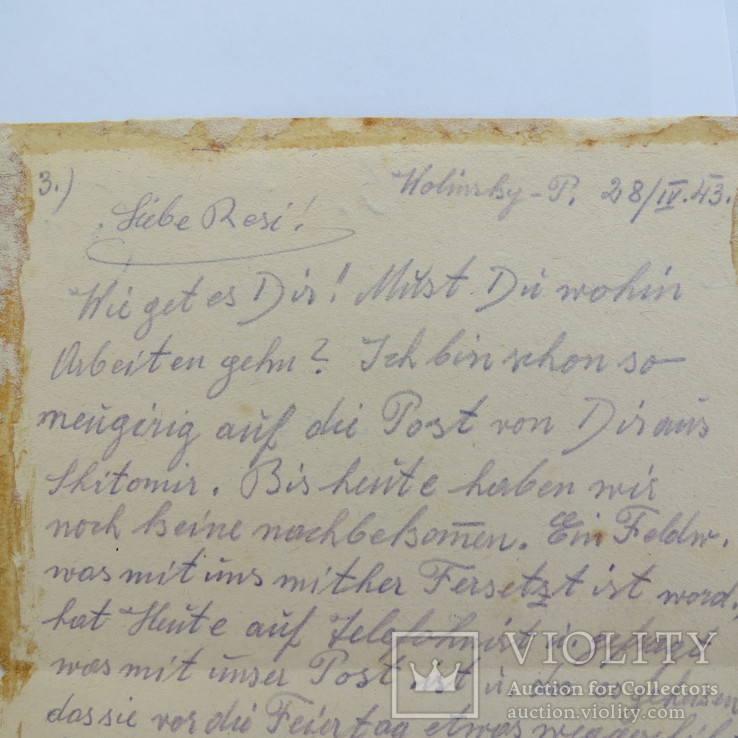 3.) Wolinsky-P. 28/IV.43.
Liebe Resi!
Wie get es Dir! Must Du wohin
Arbeiten gehn? Ich bin schon so
neugirig auf die Post von Dir aus
Shitomir. Bis heute haben wir
noch keine nachbekomen. Ein Feldw.
was mit uns mit her Fersetzt ist word.,
hat Heute auf Telefohnist
was mit unser Post ist u.
das sie vor die Feiertag etwas
VIOLITY
Auction for Collectors
auction.violity.com